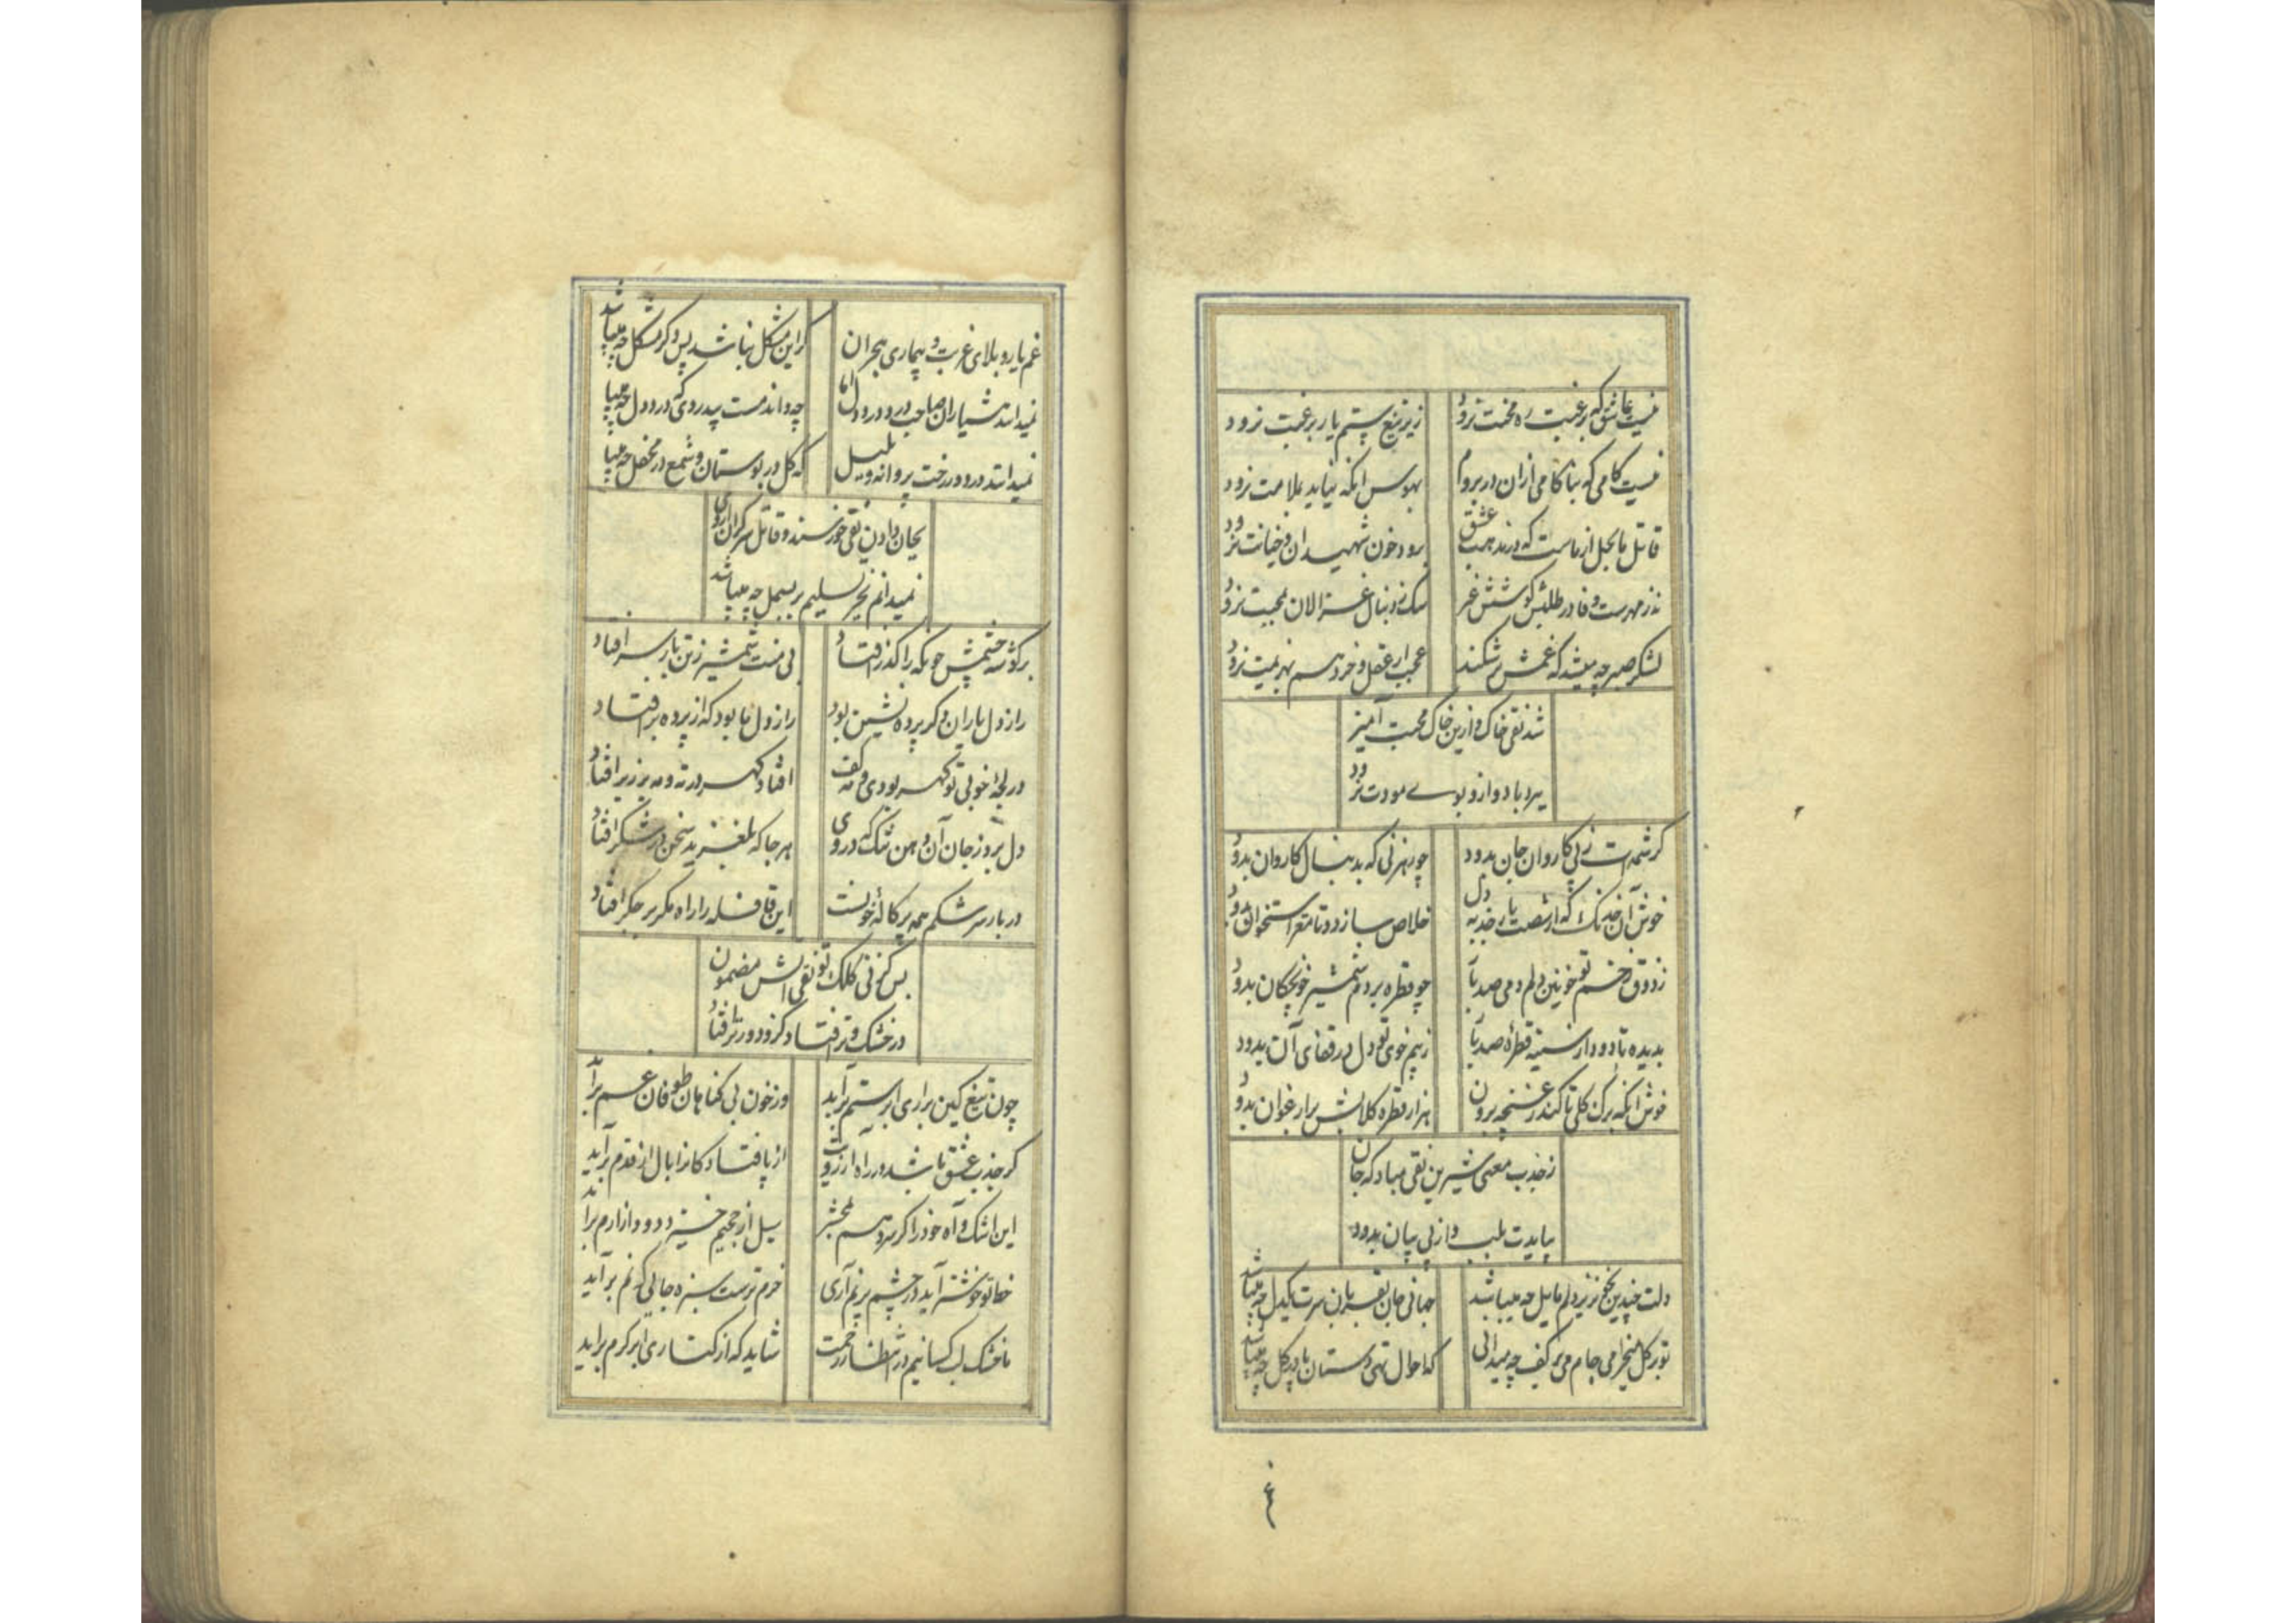 نیست عاشق که برغبت ره محنت نرود
زیر تیغ ستم یار برغبت نرود
نیست کامی که بناکامی ازان در بروم
بهوس اینکه نیاید بملامت نرود
قاتل ما بحل از ماست که در مذهب عشق
برود خون شهیدان و خیانت نرود
مهرست و وفا در طلبش کوشش غیر
سک ز دنبال غزالان بمحبت نرود
لشکر صبر چه بیند که غمش برشکند
عجب ار عقل و خرد هم بهزیمت نرود
شد نقی خاک و ازین خاک محبت آمیز
ببرد باد و ازو بوے مودت نرود
کرشمه‌ات ز پی کاروان جان بدود
چو رهزنی که بدنبال کاروان بدود
خوش آن خدنک که از شصت یار جذبه دل
خلاص سازد و تا مغز استخوان بدود
ز ذوق زخم تو خونین دلم دمی صد بار
چو قطره بر دم شمشیر خونچکان بدود
بدیده تا دود از سینه قطرهٔ صد بار
ز بیم خوی تو دل در قفای آن بدود
خوش آنکه برک کلی تا کند ز غنچه برون
هزار قطره کلابش بر ارغوان بدود
ز جذب معنی شیرین نقی مباد که جان
بیایدت بلب و از پی بیان بدود
دلت خندین بخنجر نیز دلم مایل چه میباشد
جهانی جان بقربان سرت یکدل چه میباشد
تو بر کل میخرامی جام می بر کف چه میدانی
که احوال تهی دستان پا در کل چه میباشد
غم یار و بلای غربت و بیماری هجران
کر این مشکل نباشد پس دکر مشکل چه میباشد
نمیدانند هشیاران صاحب درد درد دل ما
چه داند مست بیدردی که درد دل چه میباشد
نمیدانند درد و رخت پروانه و بلبل
که کل در بوستان و شمع در محفل چه میباشد
بجان دادن نقی خورسند و قاتل سرکران از وی
نمیدانم بجز تسلیم بر بسمل چه میباشد
بر کوشه چشمش چو نکه را کذر افتاد
بی منت شمشیر ز تن بار سر افتاد
راز دل یاران دکر پرده نشین بود
راز دل ما بود که از پرده بر افتاد
در لجهٔ خوبی تو کهر بودی و مه کف
افتاد کهر در ته و مه بر زبر افتاد
دل برد ز جان آن دهن تنک که در وی
هر جا که بلغزید سخن در شکر افتاد
در بار سرشکم همه پرکالهٔ خونست
این قافله را راه مکر بر جکر افتاد
بس کز نی کلک تو نقی آتش مضمون
در خشک و تر افتاد کزو دود بر افتاد
چون تیغ کین براری ابر ستم براید
وز خون بی کناهان طوفان غم براید
کر جذب عشق باشد در راه آرزویت
از پا فتادکانرا بال از قدم براید
این اشک و آه خود را کر سر دهم بمحشر
سیل از جحیم خیزد دود از ارم براید
خط تو خوشتر آید در چشم پرنم آری
خرم ترست سبزه جایی که نم براید
ما خشک لب کسانیم در انتظار رحمت
شاید که از کناری ابر کرم براید